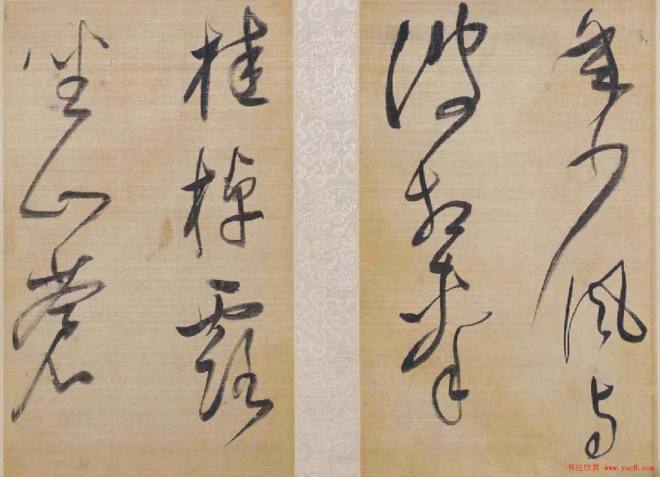 少風与
波
桂棹露
坐山蒼
书法欣赏 www.yac8.com